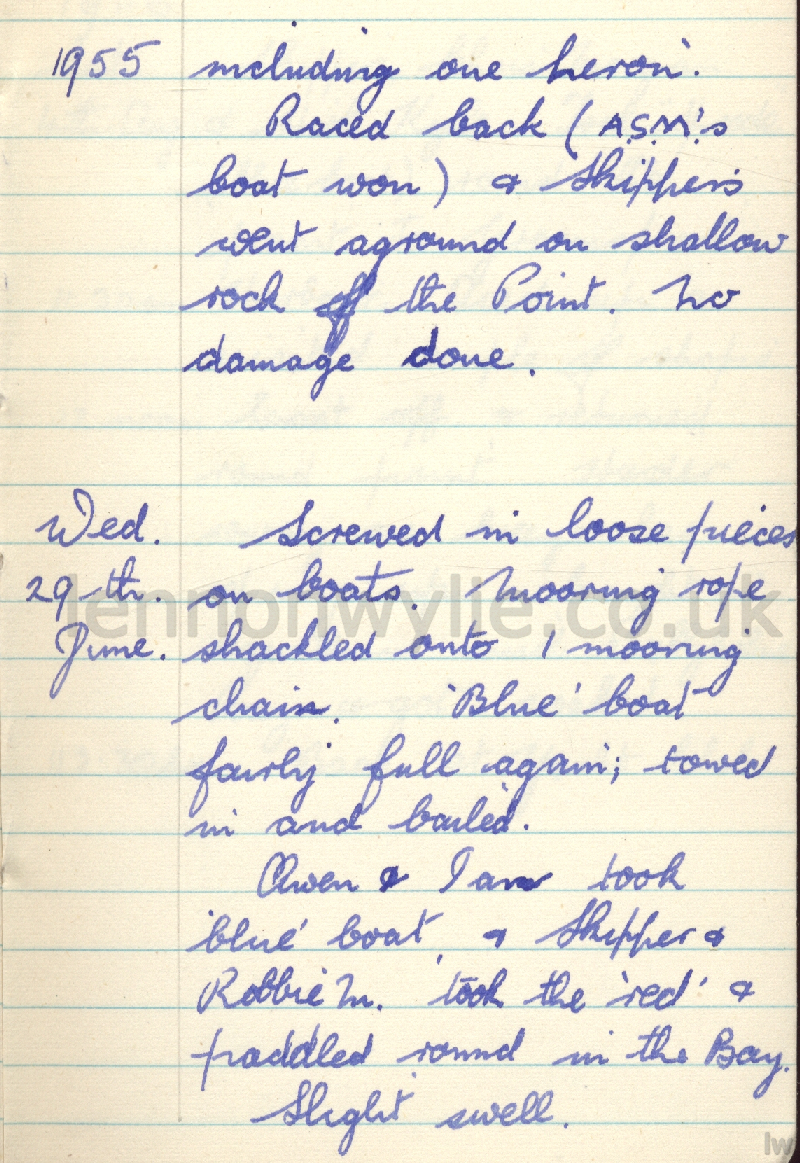 1955 including one heron.
Raced back (A.S.M.'s
boat won) & Skipper's
went aground on shallow
rock off the Point. No
damage done.
Wed. Screwed in loose pieces
29th. on boats. Mooring rope
June. shackled onto 1 mooring
chain. 'Blue' boat
fairly full again; towed
in and bailed.
Owen & Ian took
'blue' boat, & Skipper &
Robbie M. took the 'red' &
paddled round in the Bay.
Slight swell.
lennonwylie.co.uk
lw